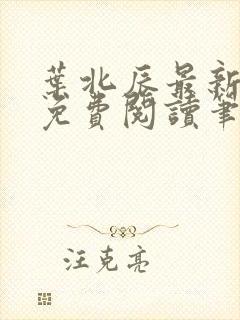 葉北辰最新
免費閱讀筆
汪克亮